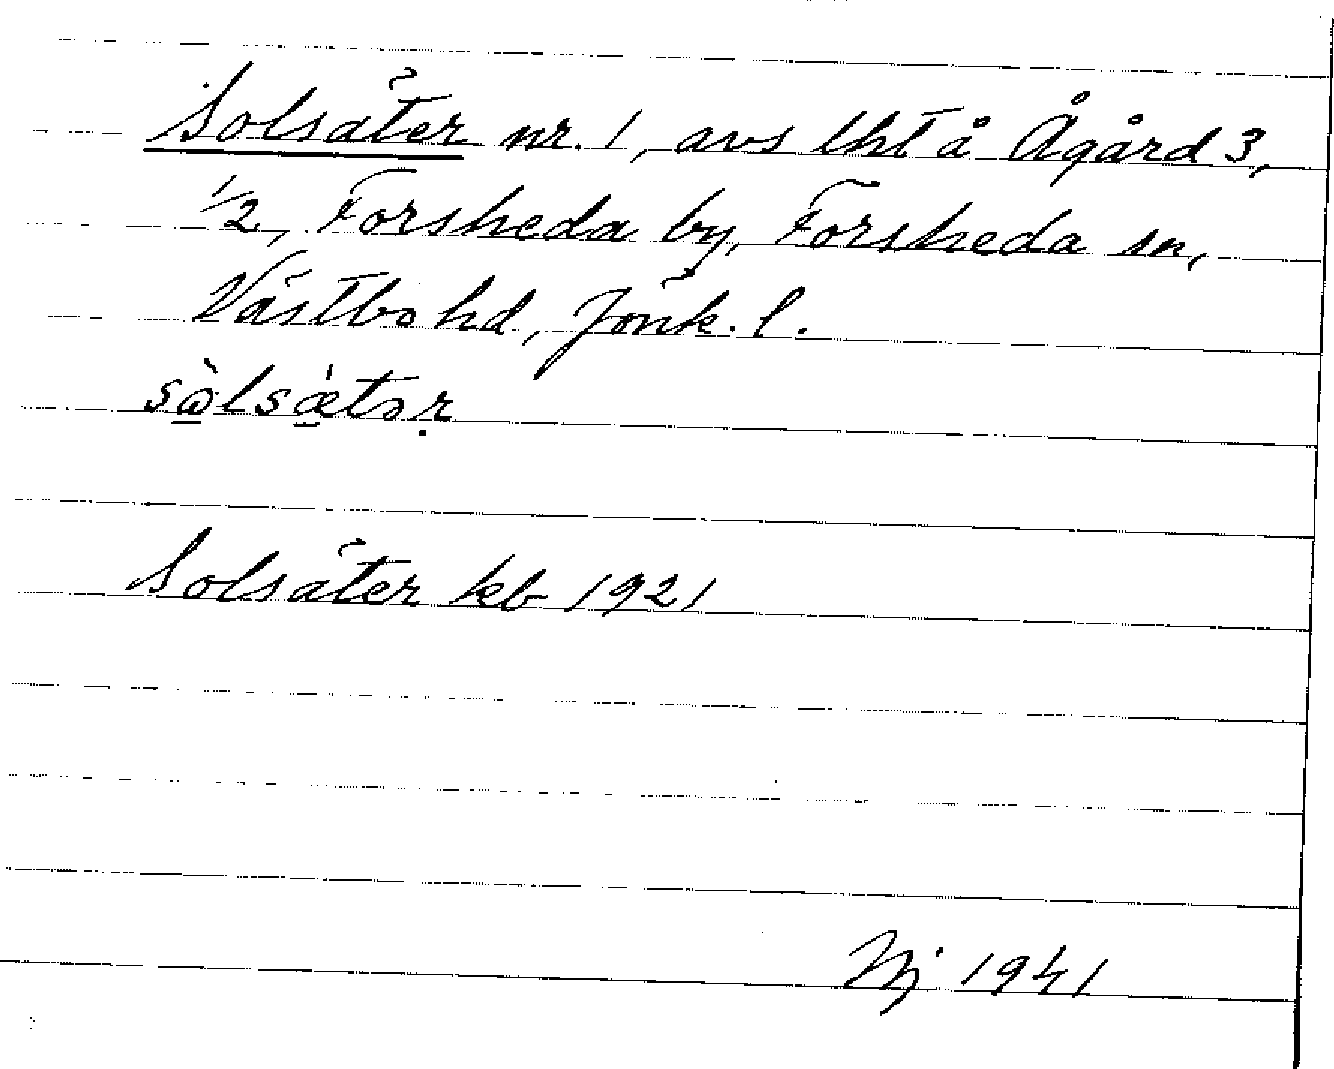 Solsäter nr. 1, avs lht å Ågård 3,
1/2, Forsheda by, Forsheda sn,
Västbo hd, Jönk. l.
sὼlsǽtər̩
Solsäter kb 1921
1941